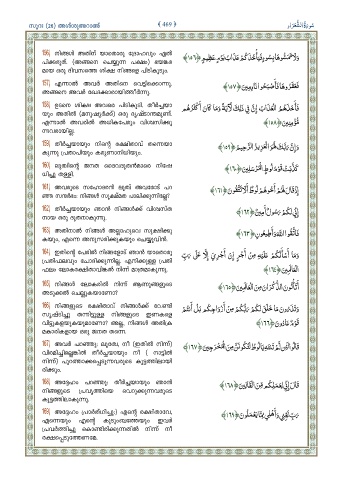 സൂറഃ (26) അശ്ശുഅറാഅ് ﴾ 469 ﴿ سُورَةُ الشُّعَرَاءِ
156) നിങ്ങൾ അതിന് യാതൊരു ദ്രോഹവും ഏൽ
പിക്കരുത്. (അങ്ങനെ ചെയ്യുന്ന പക്ഷം) ഭയങ്ക
രമായ ഒരു ദിവസത്തെ ശിക്ഷ നിങ്ങളെ പിടികൂടും.
وَلَا تَمَسُّوهَا بِسُوءٍ فَيَأْخُذَكُمْ عَذَابُ يَوْمٍ عَظِيمٍ ﴿١٥٦﴾
157) എന്നാൽ അവർ അതിനെ വെട്ടിക്കൊന്നു.
അങ്ങനെ അവർ ഖേദക്കാരായിത്തീർന്നു.
فَعَقَرُوهَا فَأَصْبَحُوا نَادِمِينَ ﴿١٥٧﴾
158) ഉടനെ ശിക്ഷ അവരെ പിടികൂടി. തീർച്ചയാ
യും അതിൽ (മനുഷ്യർക്ക്) ഒരു ദൃഷ്ടാന്തമുണ്ട്.
എന്നാൽ അവരിൽ അധികപേരും വിശ്വസിക്കു
ന്നവരായില്ല.
فَأَخَذَهُمُ الْعَذَابُ إِنَّ فِي ذَلِكَ لَآيَةً وَمَا كَانَ أَكْثَرُهُمْ
مُؤْمِنِينَ ﴿١٥٨﴾
159) തീർച്ചയായും നിന്റെ രക്ഷിതാവ് തന്നെയാ
കുന്നു പ്രതാപിയും കരുണാനിധിയും.
وَإِنَّ رَبَّكَ لَهُوَ الْعَزِيزُ الرَّحِيمُ ﴿١٥٩﴾
160) ലൂത്വിന്റെ ജനത ദൈവദൂതൻമാരെ നിഷേ
ധിച്ചു തള്ളി.
كَذَّبَتْ قَوْمُ لُوطٍ الْمُرْسَلِينَ ﴿١٦٠﴾
161) അവരുടെ സഹോദരൻ ലൂത്വ് അവരോട് പറ
ഞ്ഞ സന്ദർഭം: നിങ്ങൾ സൂക്ഷ്മത പാലിക്കുന്നില്ലേ?
إِذْ قَالَ لَهُمْ أَخُوهُمْ لُوطٌ أَلَا تَتَّقُونَ ﴿١٦١﴾
162) തീർച്ചയായും ഞാൻ നിങ്ങൾക്ക് വിശ്വസ്ത
നായ ഒരു ദൂതനാകുന്നു.
إِنِّي لَكُمْ رَسُولٌ أَمِينٌ ﴿١٦٢﴾
163) അതിനാൽ നിങ്ങൾ അല്ലാഹുവെ സൂക്ഷിക്കു
കയും, എന്നെ അനുസരിക്കുകയും ചെയ്യുവിൻ.
فَاتَّقُوا اللَّهَ وَأَطِيعُونِ ﴿١٦٣﴾
164) ഇതിന്റെ പേരിൽ നിങ്ങളോട് ഞാൻ യാതൊരു
പ്രതിഫലവും ചോദിക്കുന്നില്ല. എനിക്കുള്ള പ്രതി
ഫലം ലോകരക്ഷിതാവിങ്കൽ നിന്ന് മാത്രമാകുന്നു.
وَمَا أَسْأَلُكُمْ عَلَيْهِ مِنْ أَجْرٍ إِنْ أَجْرِيَ إِلَّا عَلَى رَبِّ
الْعَالَمِينَ ﴿١٦٤﴾
165) നിങ്ങൾ ലോകരിൽ നിന്ന് ആണുങ്ങളുടെ
അടുക്കൽ ചെല്ലുകയാണോ?
أَتَأْتُونَ الذُّكْرَانَ مِنَ الْعَالَمِينَ ﴿١٦٥﴾
166) നിങ്ങളുടെ രക്ഷിതാവ് നിങ്ങൾക്ക് വേണ്ടി
സൃഷ്ടിച്ചു തന്നിട്ടുള്ള നിങ്ങളുടെ ഇണകളെ
വിട്ടുകളയുകയുമാണോ? അല്ല, നിങ്ങൾ അതിക്ര
മകാരികളായ ഒരു ജനത തന്നെ.
وَتَذَرُونَ مَا خَلَقَ لَكُمْ رَبُّكُمْ مِنْ أَزْوَاجِكُمْ بَلْ أَنْتُمْ
قَوْمٌ عَادُونَ ﴿١٦٦﴾
167) അവർ പറഞ്ഞു: ലൂത്വേ, നീ (ഇതിൽ നിന്ന്)
വിരമിച്ചില്ലെങ്കിൽ തീർച്ചയായും നീ ( നാട്ടിൽ
നിന്ന്) പുറത്താക്കപ്പെടുന്നവരുടെ കൂട്ടത്തിലായി
രിക്കും.
قَالُوا لَئِنْ لَمْ تَنْتَهِ يَا لُوطُ لَتَكُونَنَّ مِنَ الْمُخْرَجِينَ ﴿١٦٧﴾
168) അദ്ദേഹം പറഞ്ഞു: തീർച്ചയായും ഞാൻ
നിങ്ങളുടെ പ്രവൃത്തിയെ വെറുക്കുന്നവരുടെ
കൂട്ടത്തിലാകുന്നു.
قَالَ إِنِّي لِعَمَلِكُمْ مِنَ الْقَالِينَ ﴿١٦٨﴾
169) അദ്ദേഹം പ്രാർത്ഥിച്ചു:) എന്റെ രക്ഷിതാവേ,
എന്നെയും എന്റെ കുടുംബത്തേയും ഇവർ
പ്രവർത്തിച്ചു കൊണ്ടിരിക്കുന്നതിൽ നിന്ന് നീ
രക്ഷപ്പെടുത്തേണമേ.
رَبِّ نَجِّنِي وَأَهْلِي مِمَّا يَعْمَلُونَ ﴿١٦٩﴾